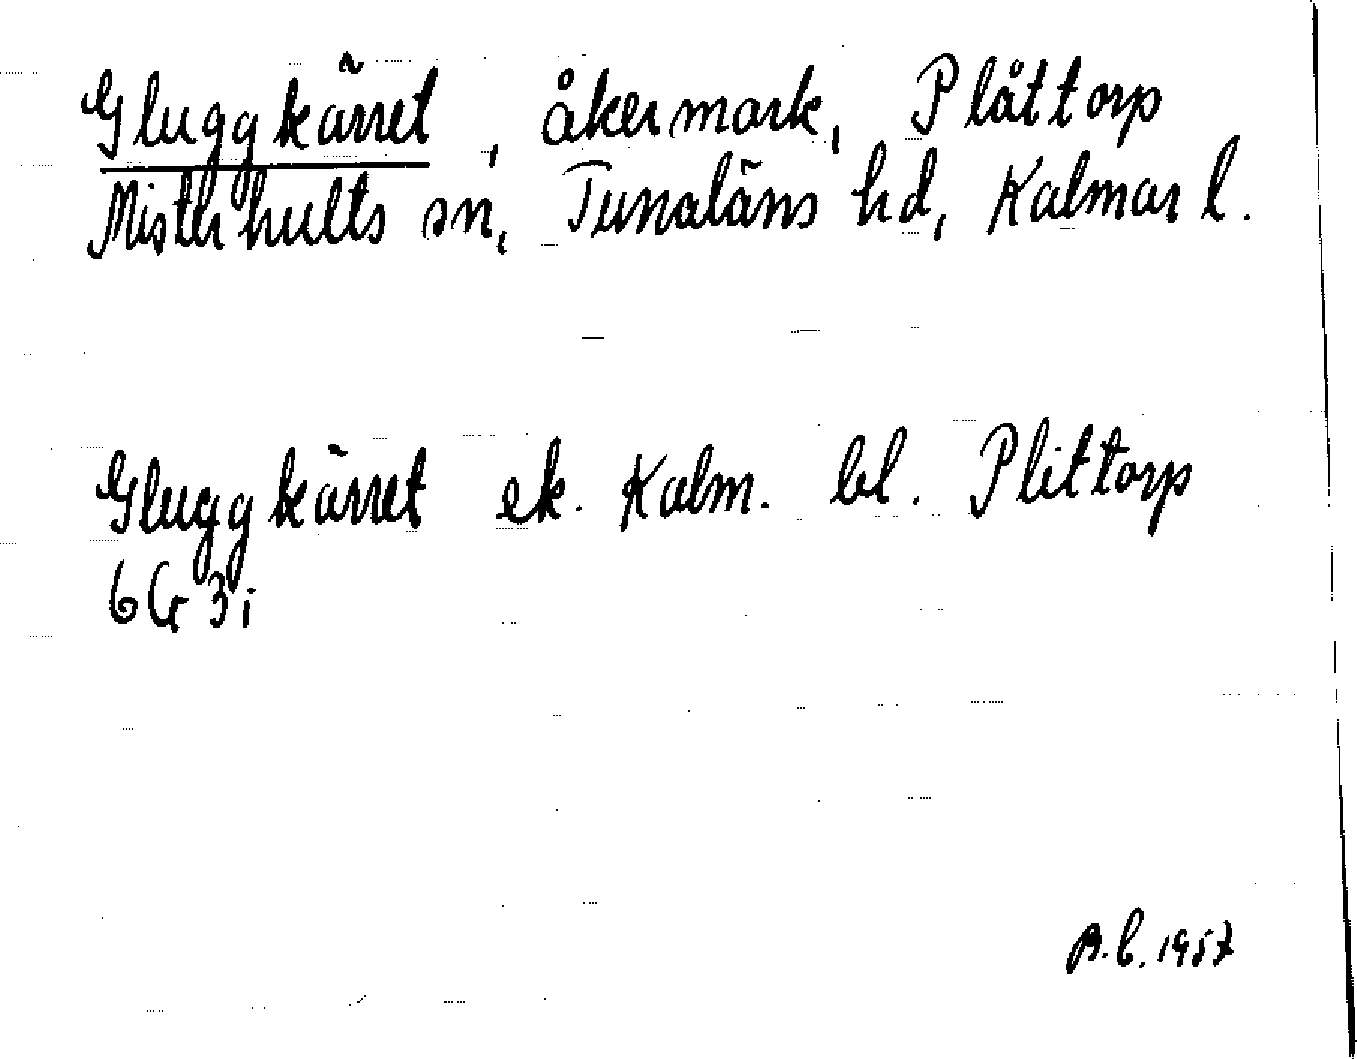 Gluggkärret, åkermark, Plåttorp
Misterhults sn, Tunaläns hd, Kalmar l.
Gluggkärret ek. Kalm. bl. Plittorp
6G 3i
B.L. 1957